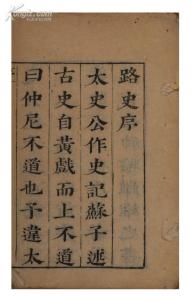 路史序
太史公作史記蘇子述
古史自黃戲而上不道
曰仲尼不道也予違太